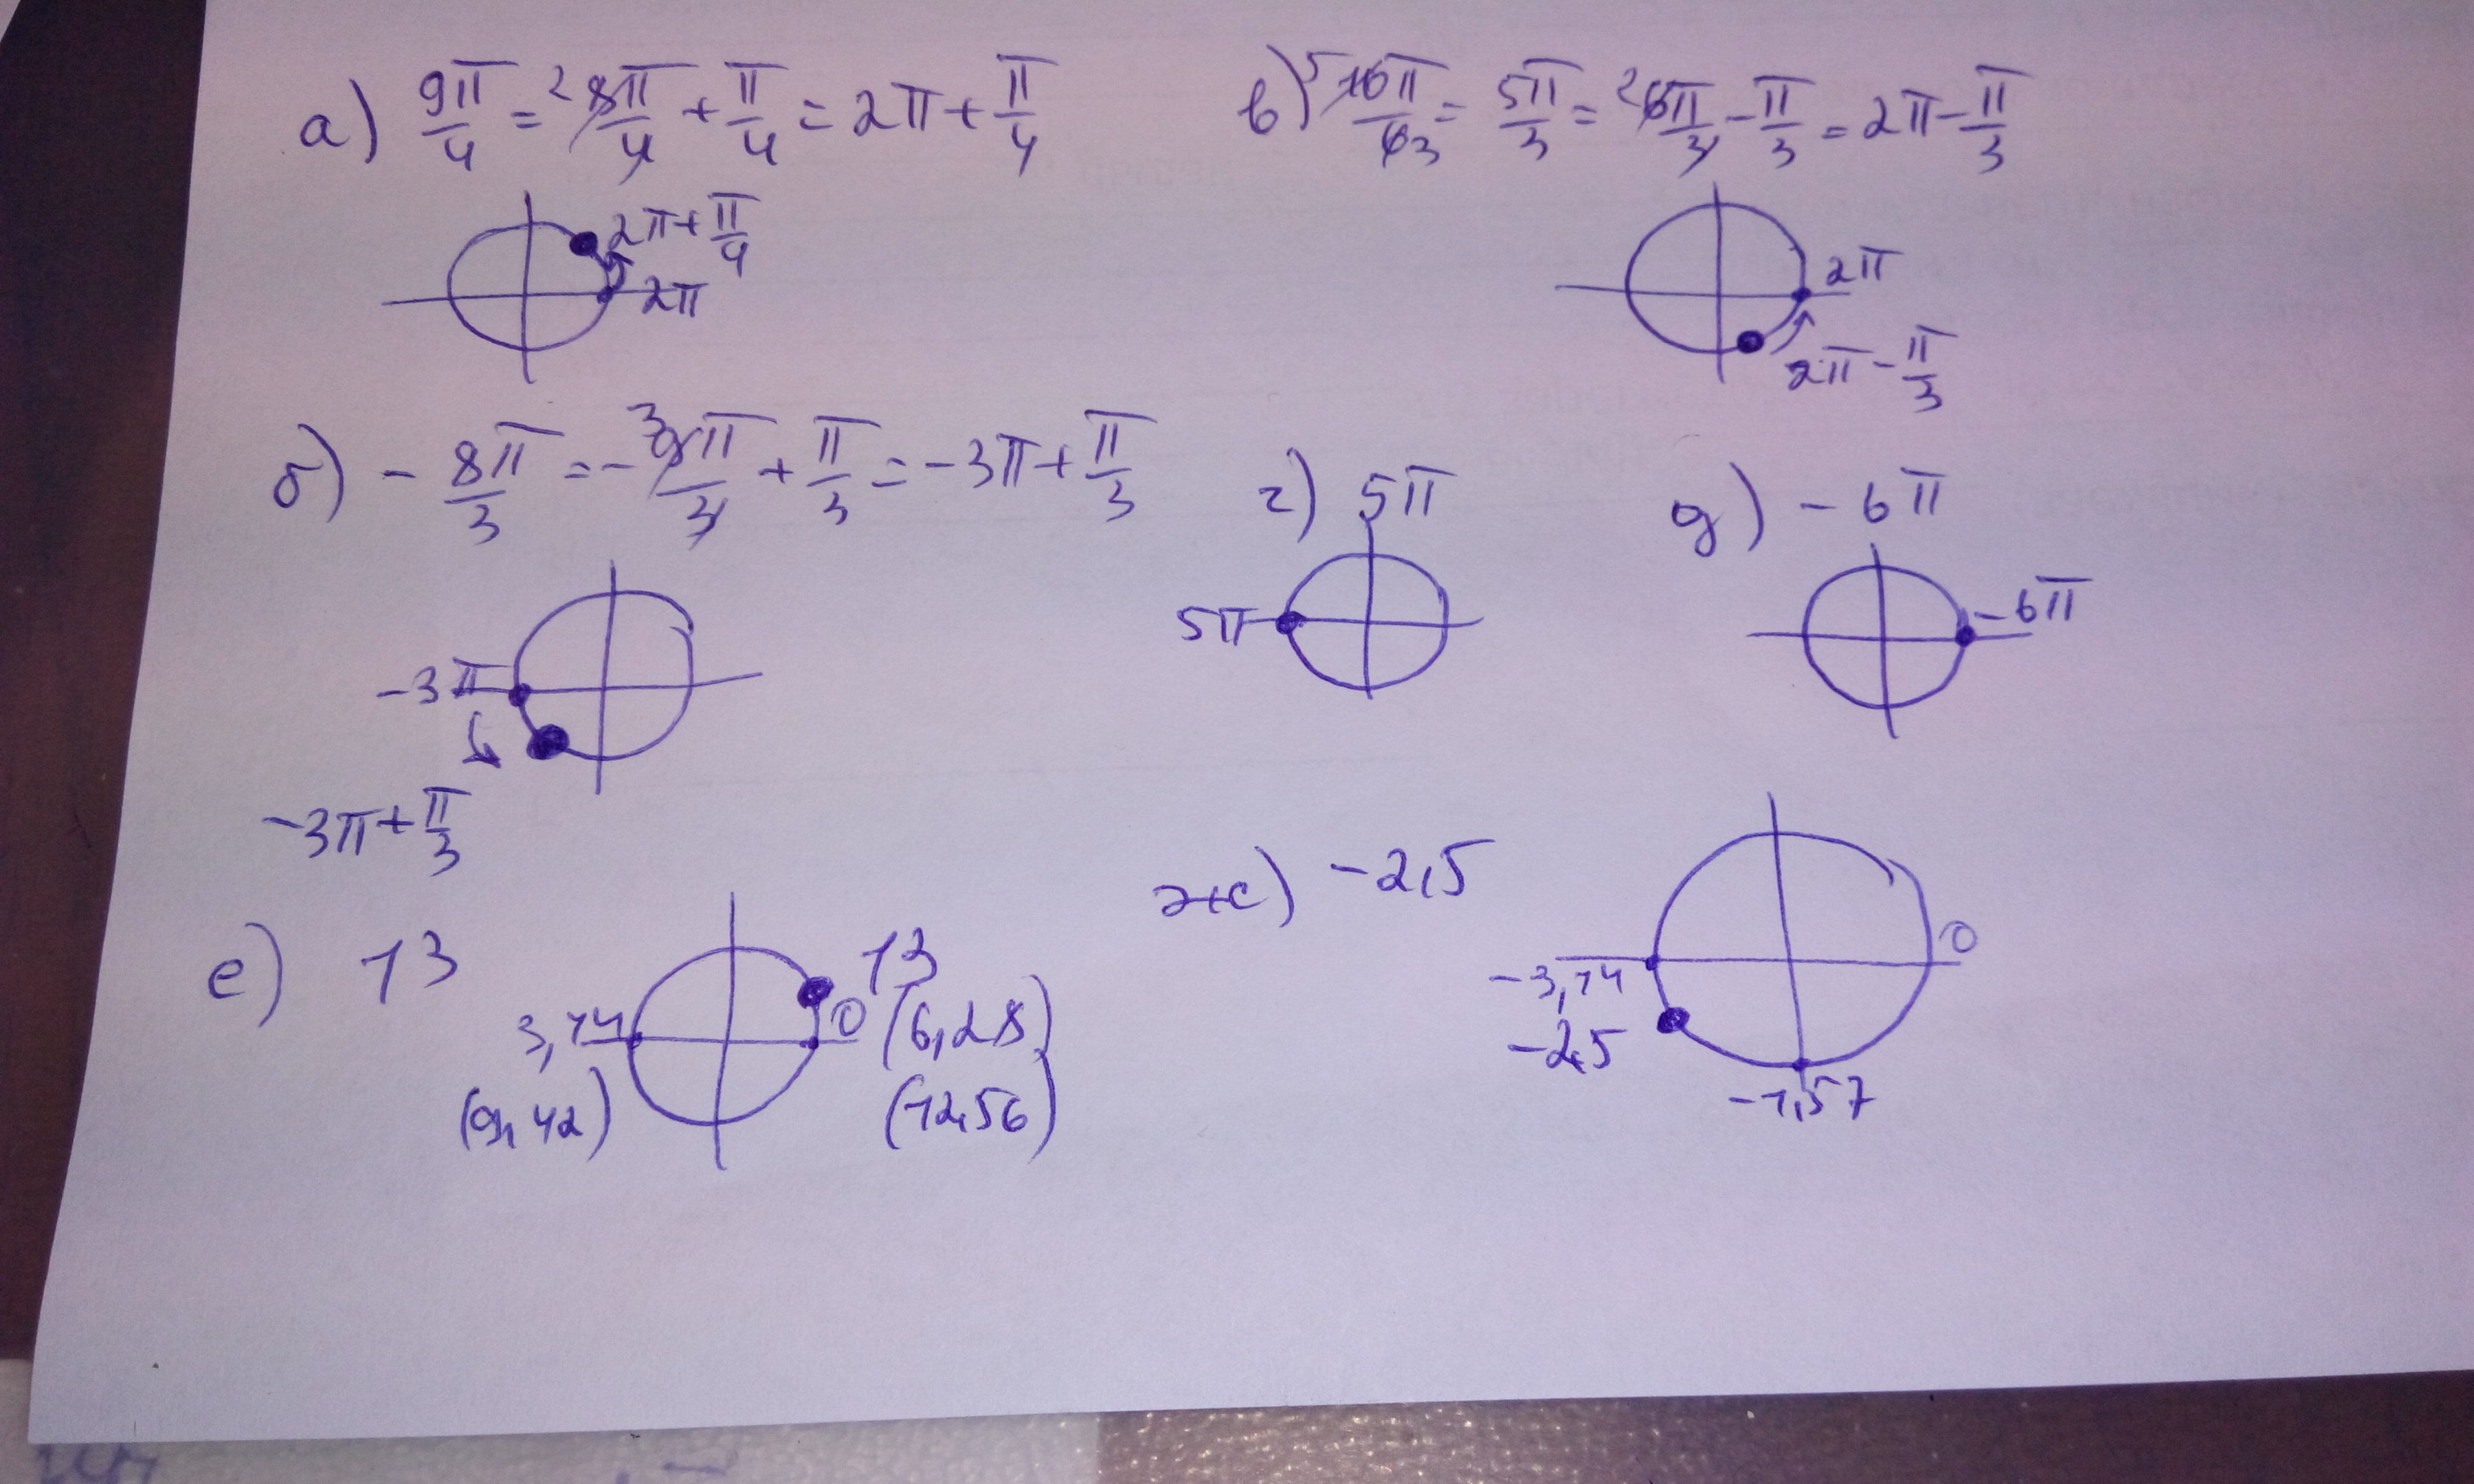 а) 9π/4 = 8π/4 + π/4 = 2π + π/4
2π + π/4
2π
в) 10π/6 = 5π/3 = 6π/3 - π/3 = 2π - π/3
2π
2π - π/3
б) - 8π/3 = - 9π/3 + π/3 = -3π + π/3
-3π
-3π + π/3
г) 5π
5π
д) - 6π
-6π
е) 13
13
0 (6,28)
3,14
(9,42)
(12,56)
ж) -2,5
0
-3,14
-2,5
-1,57